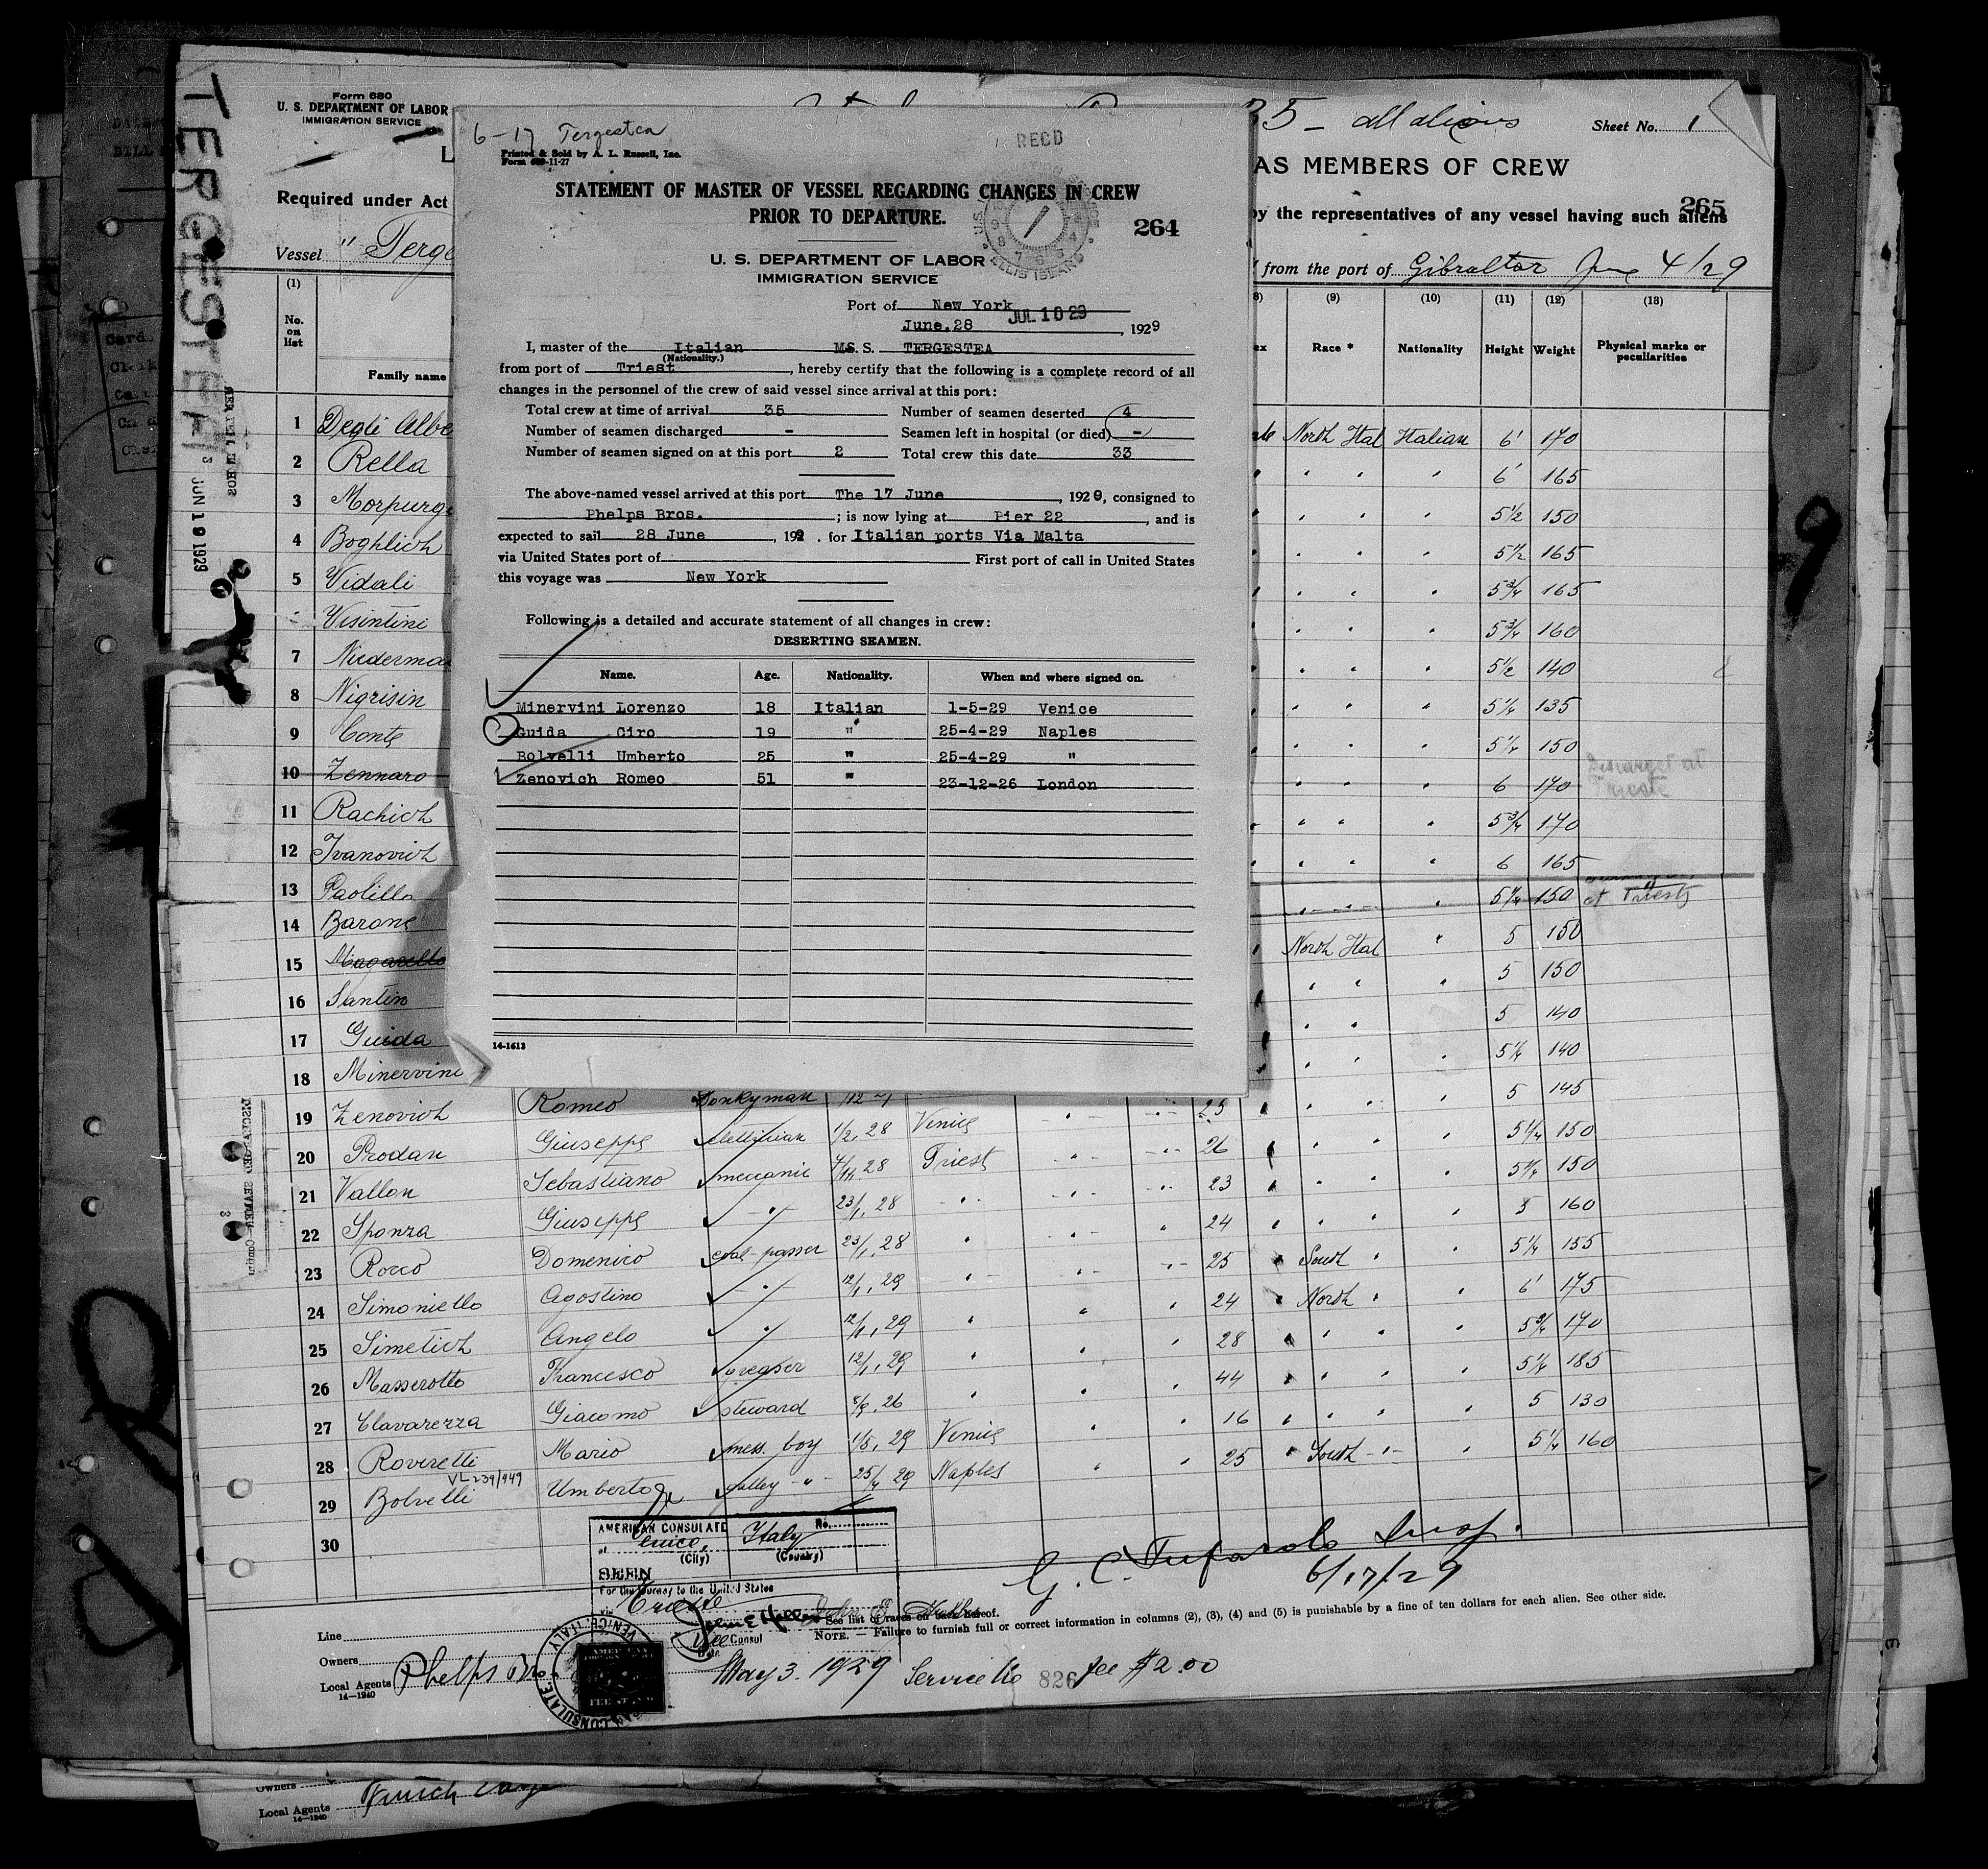 6-17 Tergestea
Printed & Sold by A. L. Russell, Inc.
RECD
STATEMENT OF MASTER OF VESSEL REGARDING CHANGES IN CREW
PRIOR TO DEPARTURE.
264
ELLIS ISLAND
U. S. DEPARTMENT OF LABOR
IMMIGRATION SERVICE
Port of New York
June.28 JUL 10 29, 1929
I, master of the Italian MS. S. TERGESTEA
(Nationality.)
from port of Triest, hereby certify that the following is a complete record of all
changes in the personnel of the crew of said vessel since arrival at this port:
Total crew at time of arrival 35 Number of seamen deserted 4
Number of seamen discharged - Seamen left in hospital (or died) -
Number of seamen signed on at this port 2 Total crew this date 33
The above-named vessel arrived at this port The 17 June, 1929, consigned to
Phelps Bros.; is now lying at Pier 22, and is
expected to sail 28 June, 192 . for Italian ports Via Malta
via United States port of First port of call in United States
this voyage was New York
Following is a detailed and accurate statement of all changes in crew:
DESERTING SEAMEN.
Name. Age. Nationality. When and where signed on.
Minervini Lorenzo 18 Italian 1-5-29 Venice
Guida Ciro 19 " 25-4-29 Naples
Bolvelli Umberto 25 " 25-4-29 "
Zenovich Romeo 51 " 23-12-26 London
14-1613
TERGESTEA
JUN 19 1929
Form 680
U. S. DEPARTMENT OF LABOR
IMMIGRATION SERVICE
35 - all aliens Sheet No. 1
AS MEMBERS OF CREW
Required under Act
by the representatives of any vessel having such aliens
265
Vessel " Terge
from the port of Gibraltar June 4/29
(1) (9) (10) (11) (12) (13)
No. on list Family name Race * Nationality Height Weight Physical marks or peculiarities
1 Degli Albe North Ital Italian 6' 170
2 Rella 6' 165
3 Morpurg 5 1/2 150
4 Boghlich 5 1/2 165
5 Vidali 5 3/4 165
Visintini 5 3/4 160
7 Niederma 5 1/2 140
8 Nigrisin 5 1/4 135
9 Conte 5 1/4 150
10 Zennaro 6 170 Discharged at Trieste
11 Rachich 5 3/4 170
12 Ivanovich 6 165
13 Paolillo 5 1/4 150 at Trieste
14 Barone North Ital 5 150
15 Magarello 5 150
16 Santin 5 140
17 Guida 5 1/4 140
18 Minervini 5 145
19 Zenovich Romeo Donkyman 5 1/4 150
20 Prodan Giuseppe 1/2, 28 Venice 26 5 1/4 150
21 Vallon Sebastiano meccanic 28 Triest 23 5 160
22 Sponza Giuseppe 23/1, 28 24 5 1/4 155
23 Rocco Domenico coal-passer 23/1, 28 25 South 6' 175
24 Simoniello Agostino 12/1, 29 24 North
25 Simetich Angelo 12/1, 29 28 170
26 Masserotto Francesco greaser 12/1, 29 44 5 1/4 185
27 Clavarezza Giacomo steward 26 16 5 130
28 Roveretti Mario mess. boy 1/5, 29 Venice 25 South 5 1/4 160
VL 239/949
29 Bolvelli Umberto galley 25/4 29 Naples
30
AMERICAN CONSULATE No.
at Venice, Italy
(City) (Country)
SEEN
For the journey to the United States
via Trieste
Vice Consul
Date
G. C. Tufarolo Insp.
6/17/29
See list of races on back hereof.
NOTE. — Failure to furnish full or correct information in columns (2), (3), (4) and (5) is punishable by a fine of ten dollars for each alien. See other side.
Line
Owners
Local Agents Phelps Bro
14-1240
AMERICAN CONSULATE, VENICE, ITALY
May 3. 1929 Service No 826 fee $2.00
Owners
Local Agents
14-1240